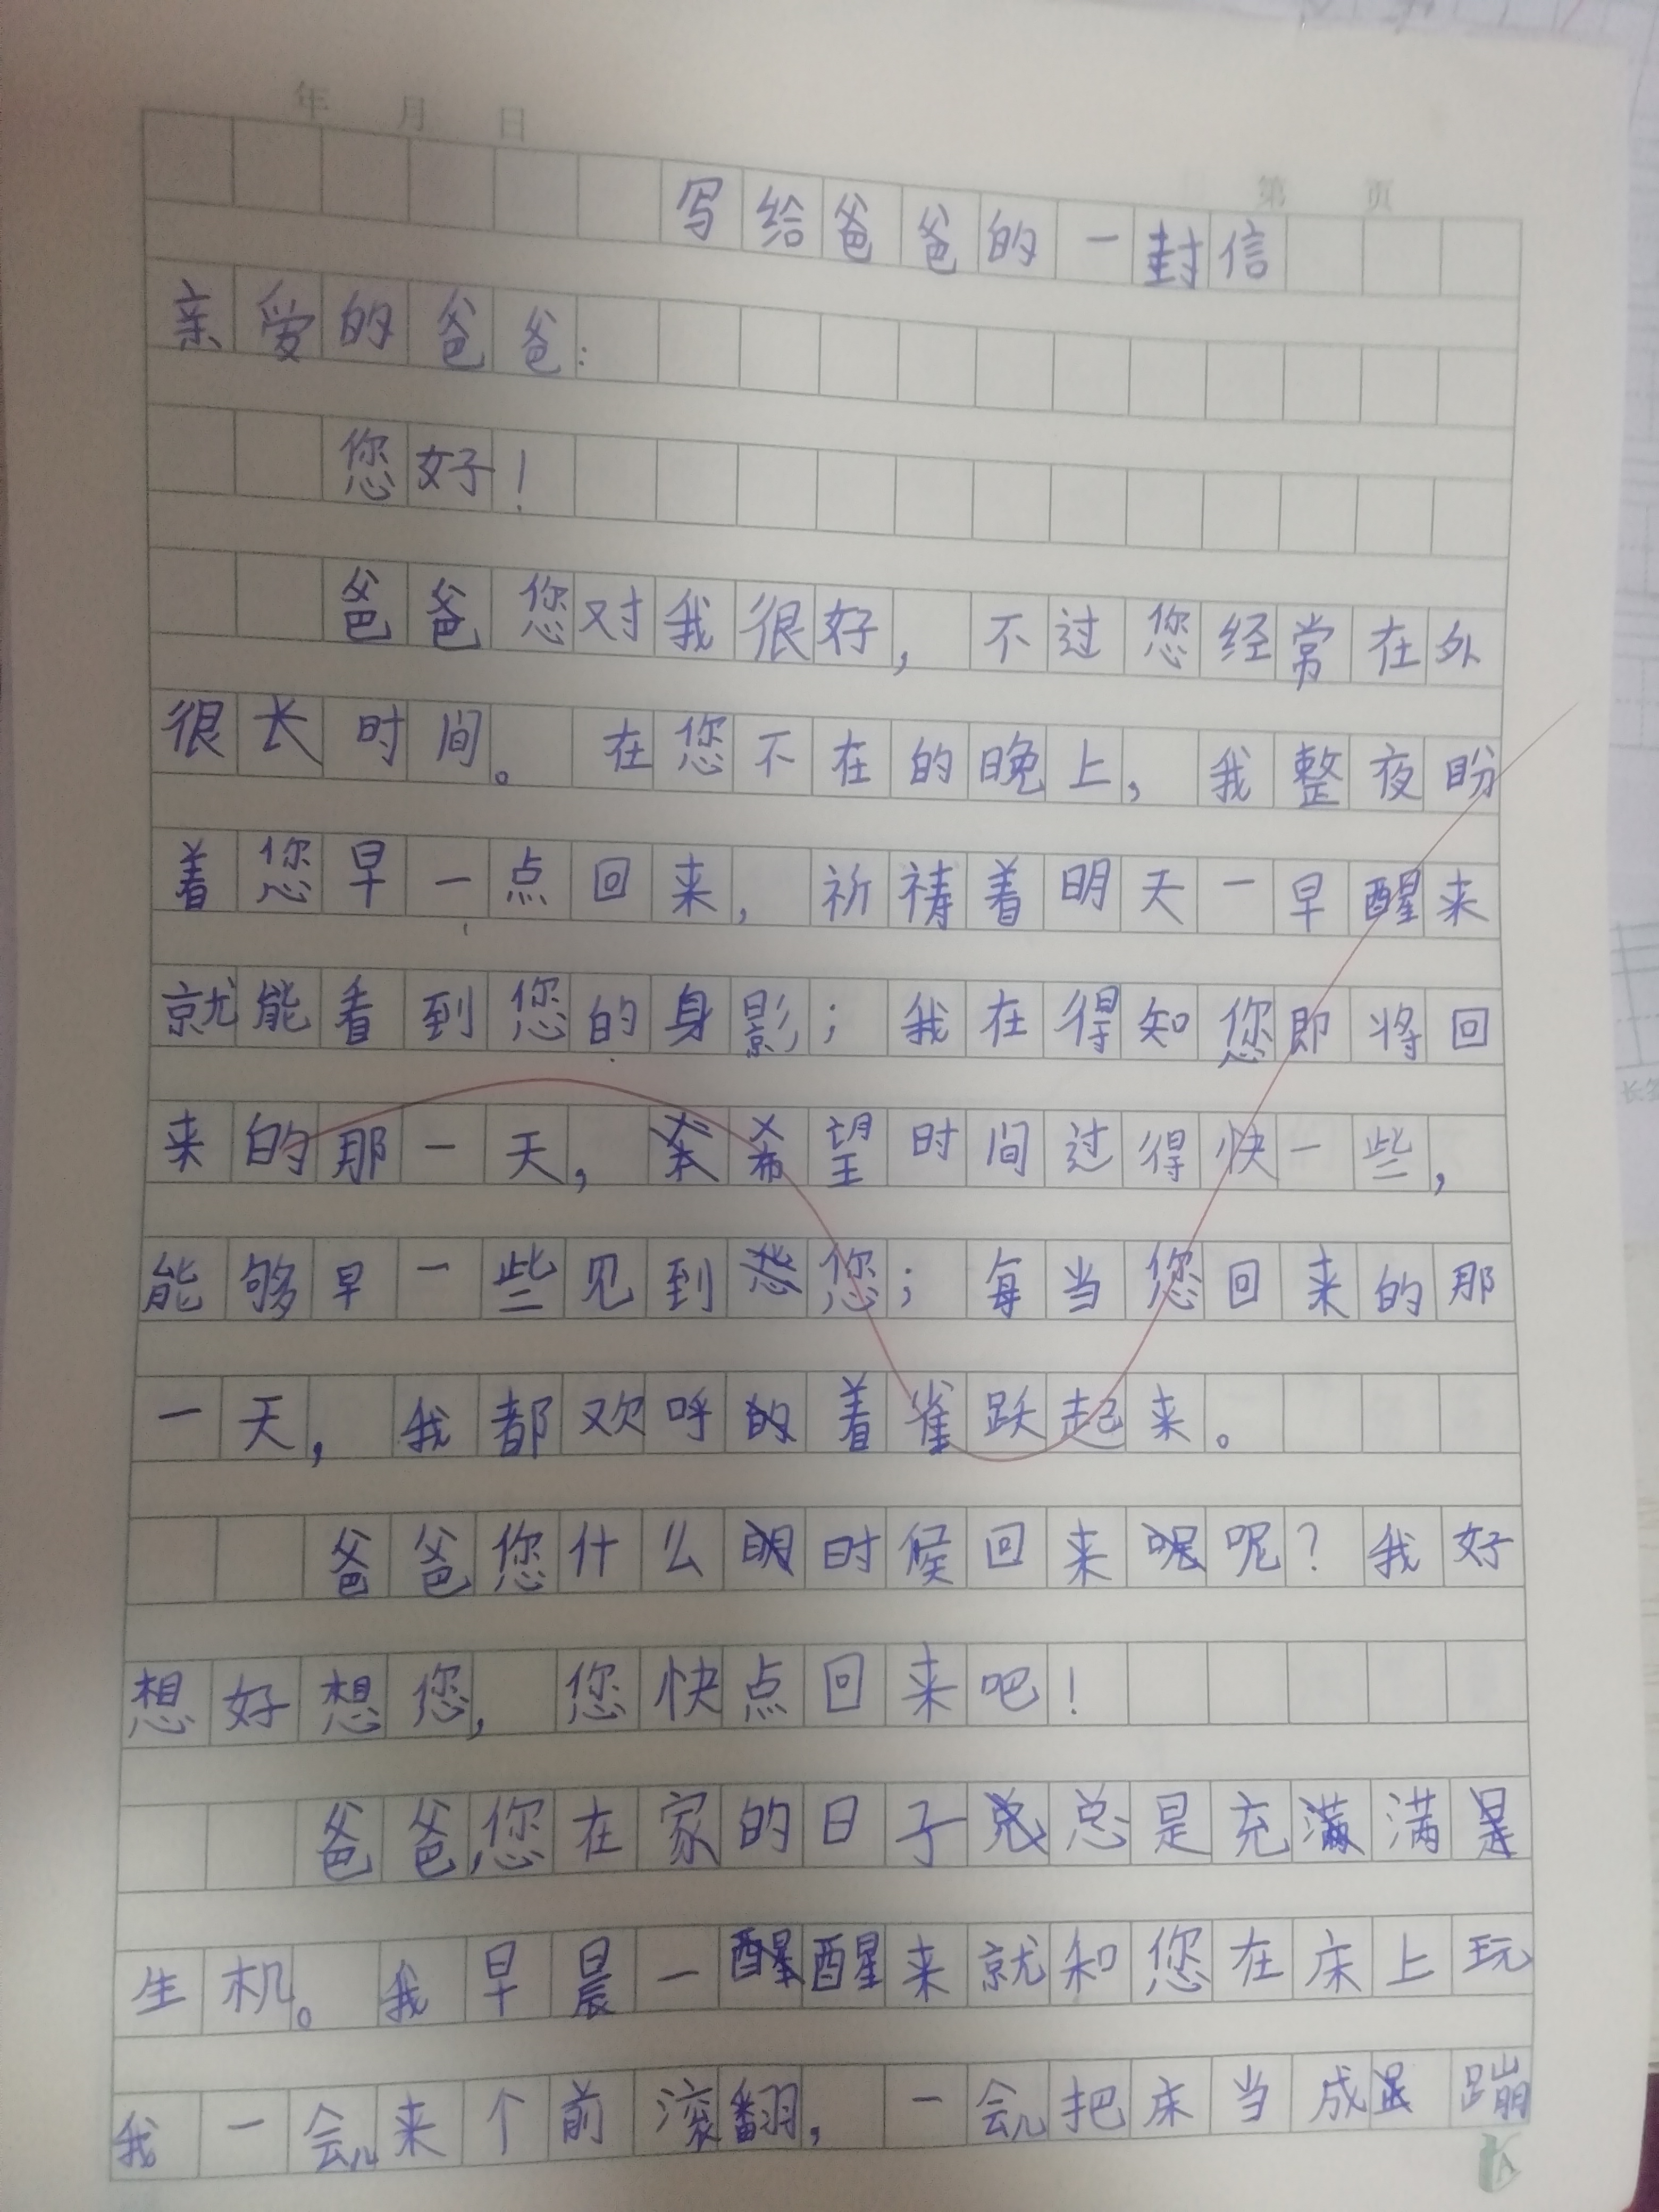 年 月 日
第 页
写给爸爸的一封信
亲爱的爸爸:
您好!
爸爸您对我很好,不过您经常在外
很长时间。在您不在的晚上,我整夜盼
着您早一点回来,祈祷着明天一早醒来
就能看到您的身影;我在得知您即将回
来的那一天,希望时间过得快一些,
能够早一些见到您;每当您回来的那
一天,我都欢呼着雀跃起来。
爸爸您什么时候回来呢?我好
想好想您,您快点回来吧!
爸爸您在家的日子总是充满
生机。我早晨一醒来就和您在床上玩
我一会儿来个前滚翻,一会儿把床当成蹦